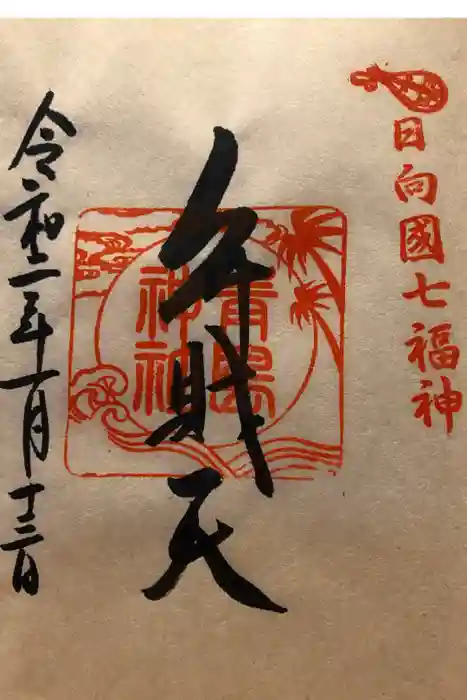 日向國七福神
弁財天
青島
神社
令和二年一月十三日